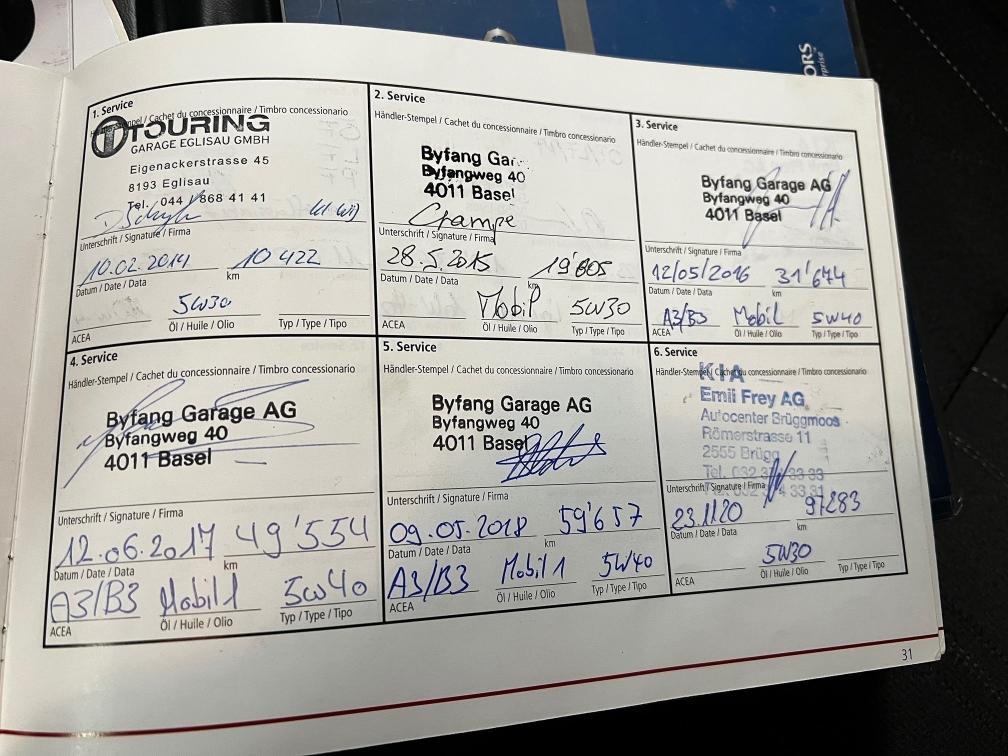 ORS
erprise
1. Service
Händler-Stempel / Cachet du concessionnaire / Timbro concessionario
TOURING
GARAGE EGLISAU GMBH
Eigenackerstrasse 45
8193 Eglisau
Tel. 044 868 41 41
Unterschrift / Signature / Firma
10.02.2014 10422
Datum / Date / Data km
5W30
ACEA Öl / Huile / Olio Typ / Type / Tipo
2. Service
Händler-Stempel / Cachet du concessionnaire / Timbro concessionario
Byfang Gar
Byfangweg 40
4011 Basel
Unterschrift / Signature / Firma
28.5.2015 19'605
Datum / Date / Data km
Mobil 5W30
ACEA Öl / Huile / Olio Typ / Type / Tipo
3. Service
Händler-Stempel / Cachet du concessionnaire / Timbro concessionario
Byfang Garage AG
Byfangweg 40
4011 Basel
Unterschrift / Signature / Firma
12/05/2016 31'674
Datum / Date / Data km
A3/B3 Mobil 5W40
ACEA Öl / Huile / Olio Typ / Type / Tipo
4. Service
Händler-Stempel / Cachet du concessionnaire / Timbro concessionario
Byfang Garage AG
Byfangweg 40
4011 Basel
Unterschrift / Signature / Firma
12.06.2017 49'554
Datum / Date / Data km
A3/B3 Mobil 1 5W40
ACEA Öl / Huile / Olio Typ / Type / Tipo
5. Service
Händler-Stempel / Cachet du concessionnaire / Timbro concessionario
Byfang Garage AG
Byfangweg 40
4011 Basel
Unterschrift / Signature / Firma
09.05.2018 59'657
Datum / Date / Data km
A3/B3 Mobil 1 5W40
ACEA Öl / Huile / Olio Typ / Type / Tipo
6. Service
Händler-Stempel / Cachet du concessionnaire / Timbro concessionario
KIA
Emil Frey AG
Autocenter Brüggmoos
Römerstrasse 11
2555 Brügg
Tel. 032 37 33 33
Unterschrift / Signature / Firma
23.11.20 97283
Datum / Date / Data km
5W30
ACEA Öl / Huile / Olio Typ / Type / Tipo
31